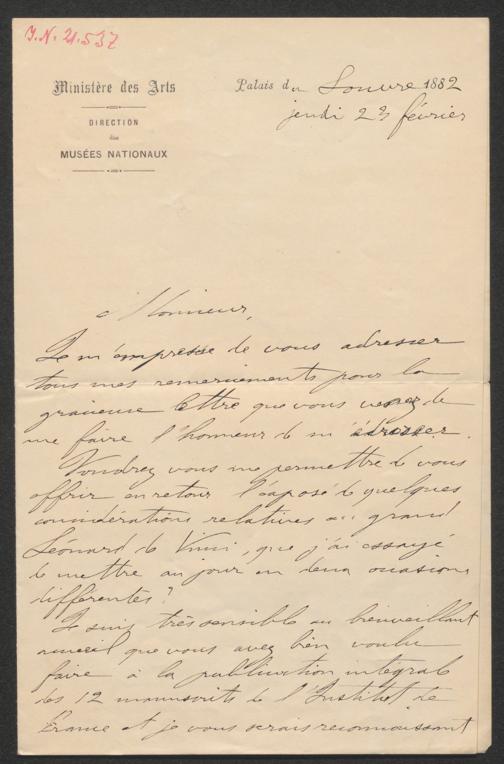 J.N. 21.537
Ministère des Arts
DIRECTION
des
MUSÉES NATIONAUX
Palais du Louvre 1882
jeudi 23 février
Monsieur,
Je m'empresse de vous adresser
tous mes remerciements pour la
gracieuse lettre que vous venez de
me faire l'honneur de m'adresser.
Voudrez vous me permettre de vous
offrir en retour l'exposé de quelques
considérations relatives au grand
Léonard de Vinci, que j'ai essayé
de mettre au jour en deux occasions
différentes ?
Je suis très sensible au bienveillant
accueil que vous avez bien voulu
faire à la publication intégrale
des 12 manuscrits de l'Institut de
France et je vous serais reconnaissant